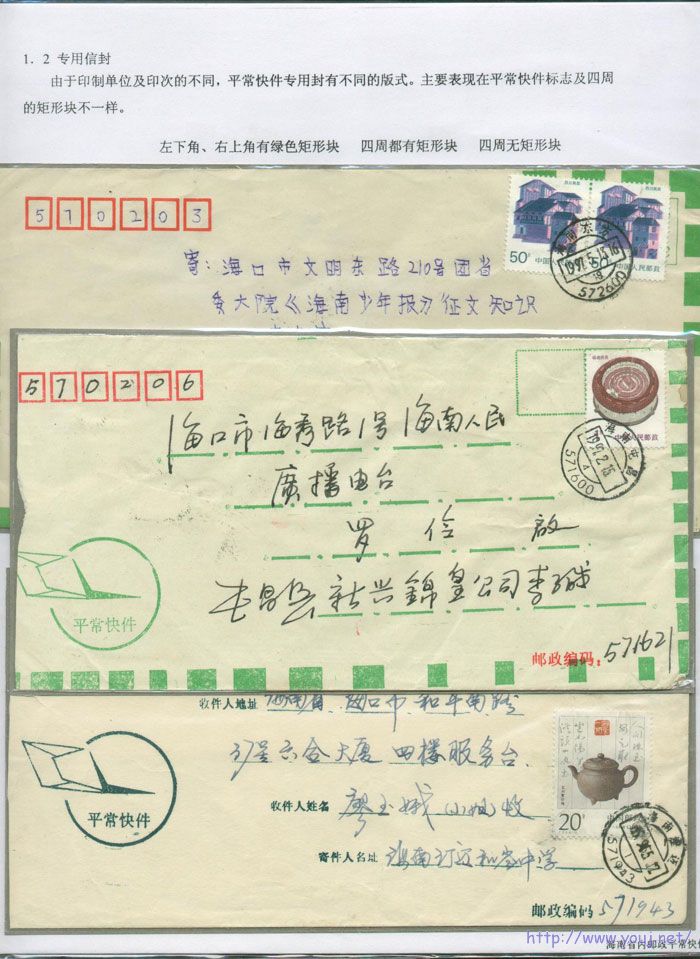 1. 2 专用信封
由于印制单位及印次的不同，平常快件专用封有不同的版式。主要表现在平常快件标志及四周
的矩形块不一样。
左下角、右上角有绿色矩形块 四周都有矩形块 四周无矩形块
570203
50分
中国人民邮政
1997.5.13.16
572600
寄：海口市文明东路210号团省
委大院《海南少年报》征文知识
570206
中国人民邮政
571600
海口市海秀路1号海南人民
廣播电台
罗 俭 啟
屯昌县新兴錦皇公司李
平常快件
邮政编码：571621
收件人地址 海南省海口市和平南路
六合大厦四楼服务台
平常快件
收件人姓名 廖玉娥(小姐)收
20分
571943
寄件人名址 海南
中学
邮政编码 571943
http://www.youji.net/
海南省内邮政平常快